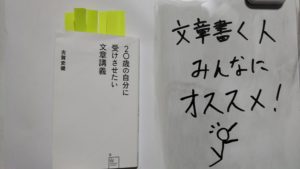 20歳の自分に
受けさせたい
文章講義
古賀史健
文章書く人
みんなに
オススメ!